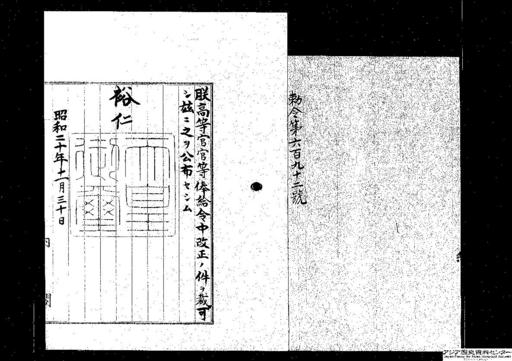 勅令第六百九十二號
朕高等官官等俸給令中改正ノ件ヲ裁可
シ茲ニ之ヲ公布セシム
裕仁
天皇御璽
昭和二十年十一月三十日
内閣
アジア歴史資料センター